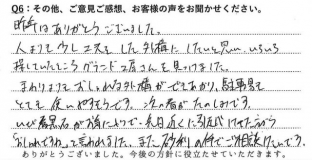 Q6：その他、ご意見ご感想、お客様の声をお聞かせください。
昨年はありがとうございました。
人よりも少し工夫をした外構にしたいと思い、いろいろ
探していたところグランド工房さんを見つけました。
まわりよりもおしゃれな外構ができあがり、駐車場も
とても使いやすそうです。次の春がたのしみです。
いし が 入って、先日近くに引越してた方から
「おしゃれですね」と言われました。また の件でご相談したいです。
ありがとうございました。今後の方針に役立たせていただきます。